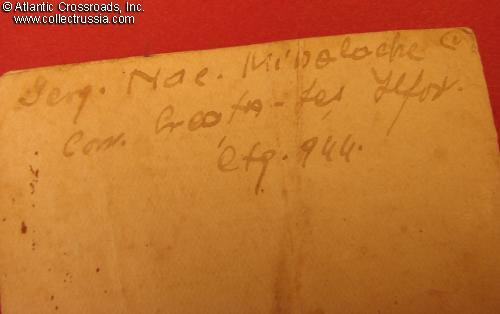 © Atlantic Crossroads, Inc.
www.collectrussia.com
Serg. Nae. Mihalache
Com. Creața-Leș Ilfov.
Ctg. 944.